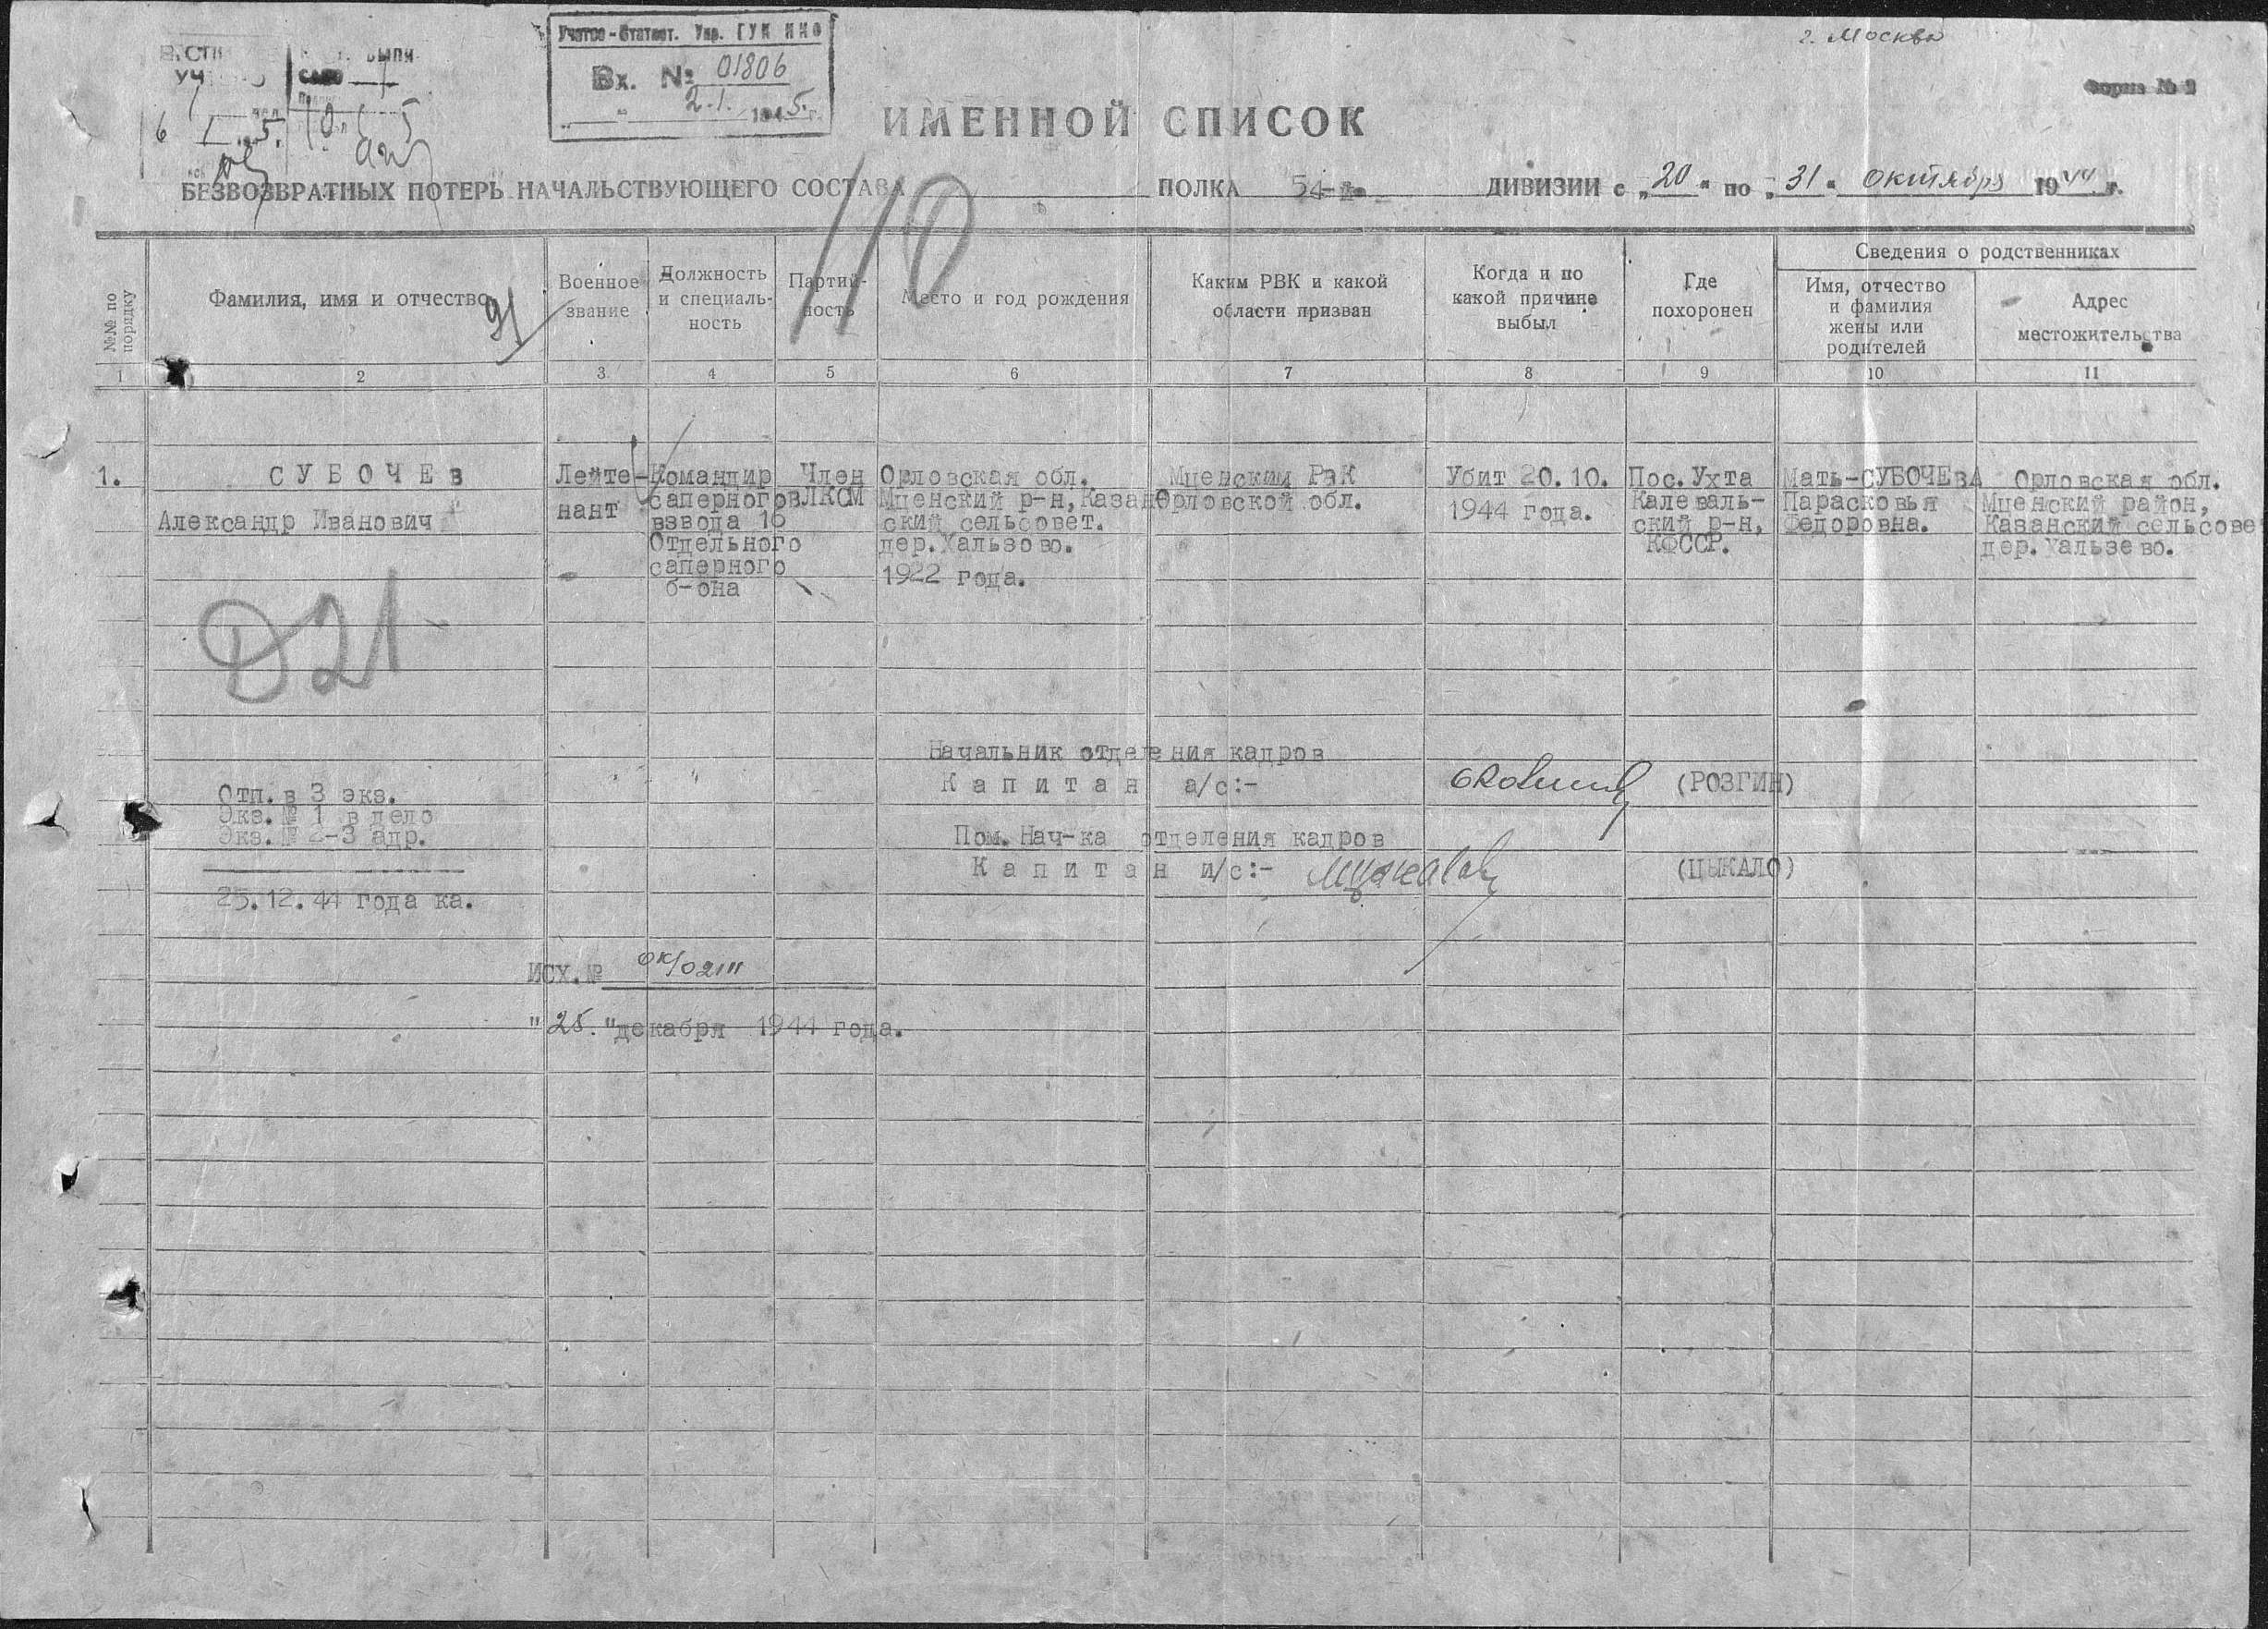 г. Москва
Форма № 2
Учетно-Статист. Упр. ГУК НКО
Вх. № 01806
2.1. 1945 г.
ИМЕННОЙ СПИСОК
БЕЗВОЗВРАТНЫХ ПОТЕРЬ НАЧАЛЬСТВУЮЩЕГО СОСТАВА ПОЛКА 54-й ДИВИЗИИ с „20“ по „31“ октября 1944 г.
110
91
№№ по порядку
Фамилия, имя и отчество
Военное звание
Должность и специаль-ность
Партий-ность
Место и год рождения
Каким РВК и какой области призван
Когда и по какой причине выбыл
Где похоронен
Сведения о родственниках
Имя, отчество и фамилия жены или родителей
Адрес местожительства
1 2 3 4 5 6 7 8 9 10 11
1.
СУБОЧЕв
Александр Иванович
Лейте-
нант
Командир
саперного
взвода 16
Отдельного
саперного
б-она
Член
вЛКСМ
Орловская обл.
Мценский р-н, Казан
ский сельсовет.
дер. Хальзово.
1922 года.
Мценским РвК
Орловской обл.
Убит 20.10.
1944 года.
Пос. Ухта
Калеваль-
ский р-н,
КФССР.
Мать-СУБОЧЕвА
Парасковья
Федоровна.
Орловская обл.
Мценский район,
Казанский сельсове
дер. Хальзево.
D21
Начальник отделения кадров
Капитан а/с:- (РОЗГИН)
Отп. в 3 экз.
Экз. № 1 в дело
Экз. № 2-3 адр.
Пом. Нач-ка отделения кадров
Капитан и/с:- (ЦЫКАЛО)
25.12.44 года ка.
ИСХ. № ОК/02111
"25." декабря 1944 года.